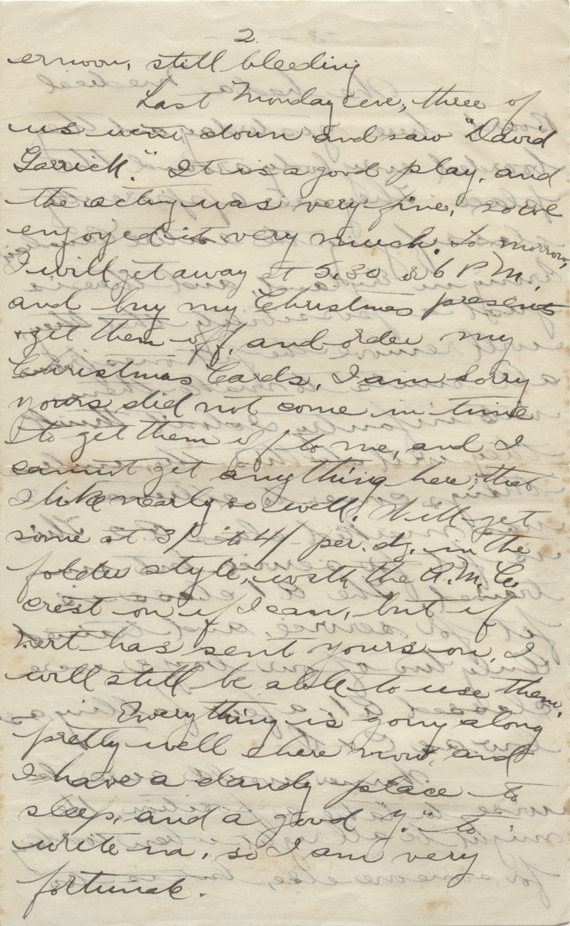 2.
ernoon, still bleeding
Last Monday eve, three of
us went down and saw "David
Garrick." It is a good play, and
the acting was very fine, so we
enjoyed it very much. To-morrow,
I will get away at 5.30 or 6 P.M.
and buy my Christmas presents
& get them off, and order my
Christmas Cards, I am sorry
yours did not come in time
to get them off to me, and I
cannot get anything here, that
I like nearly so well. Will get
some at 3/ to 4/ per. dz. in the
folder style, with the A.M.C.
crest on if I can, but if
Bert has sent yours on, I
will still be able to use them.
Everything is going along
pretty well here now, and
I have a dandy place to
sleep, and a good "Y" to
write in, so I am very
fortunate.